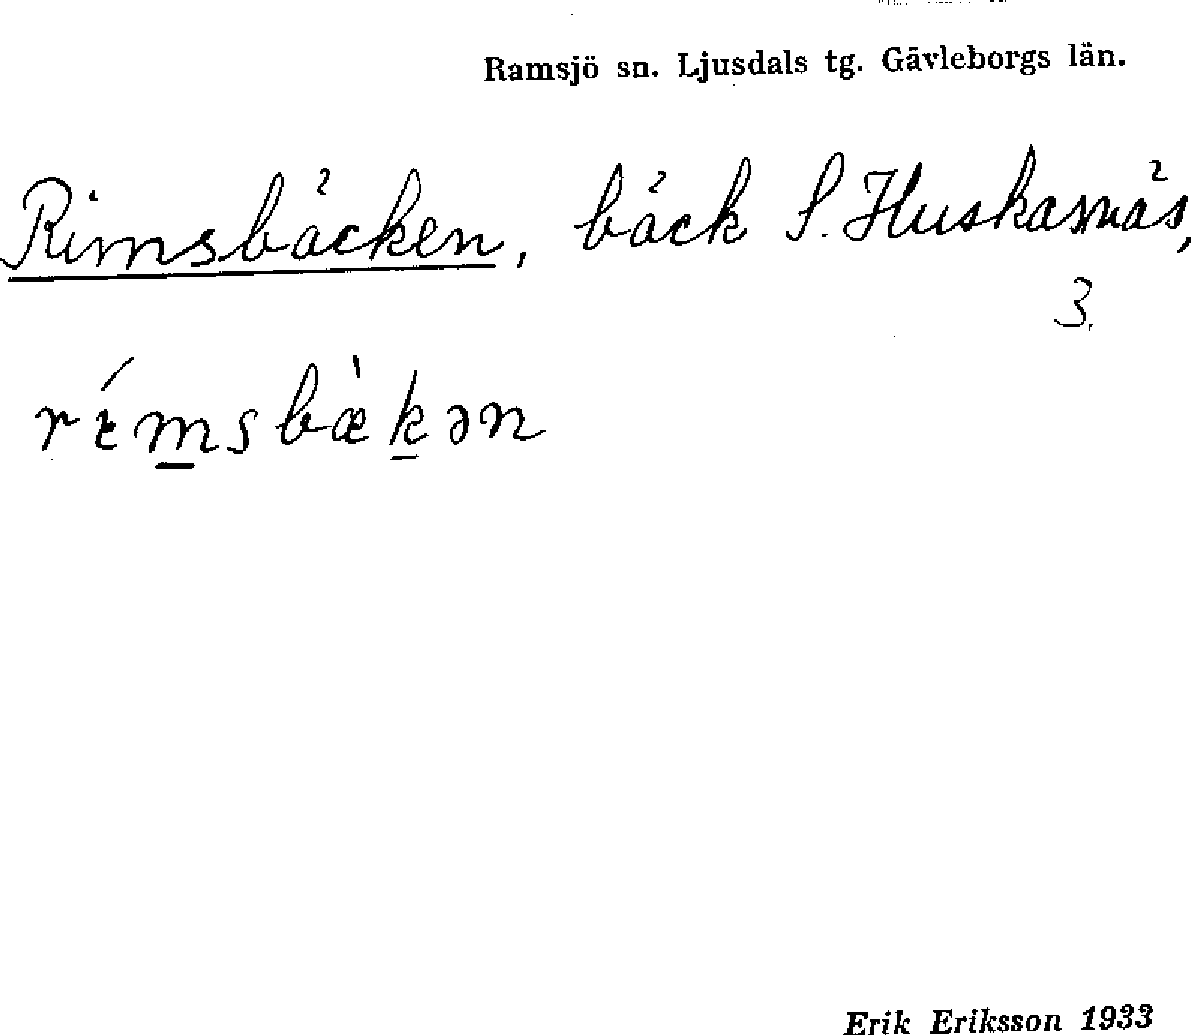 Ramsjö sn. Ljusdals tg. Gävleborgs län.
Rimsbäcken, bäck S. Huskasnäs,
3.
rímsbæ̀kən
Erik Eriksson 1933